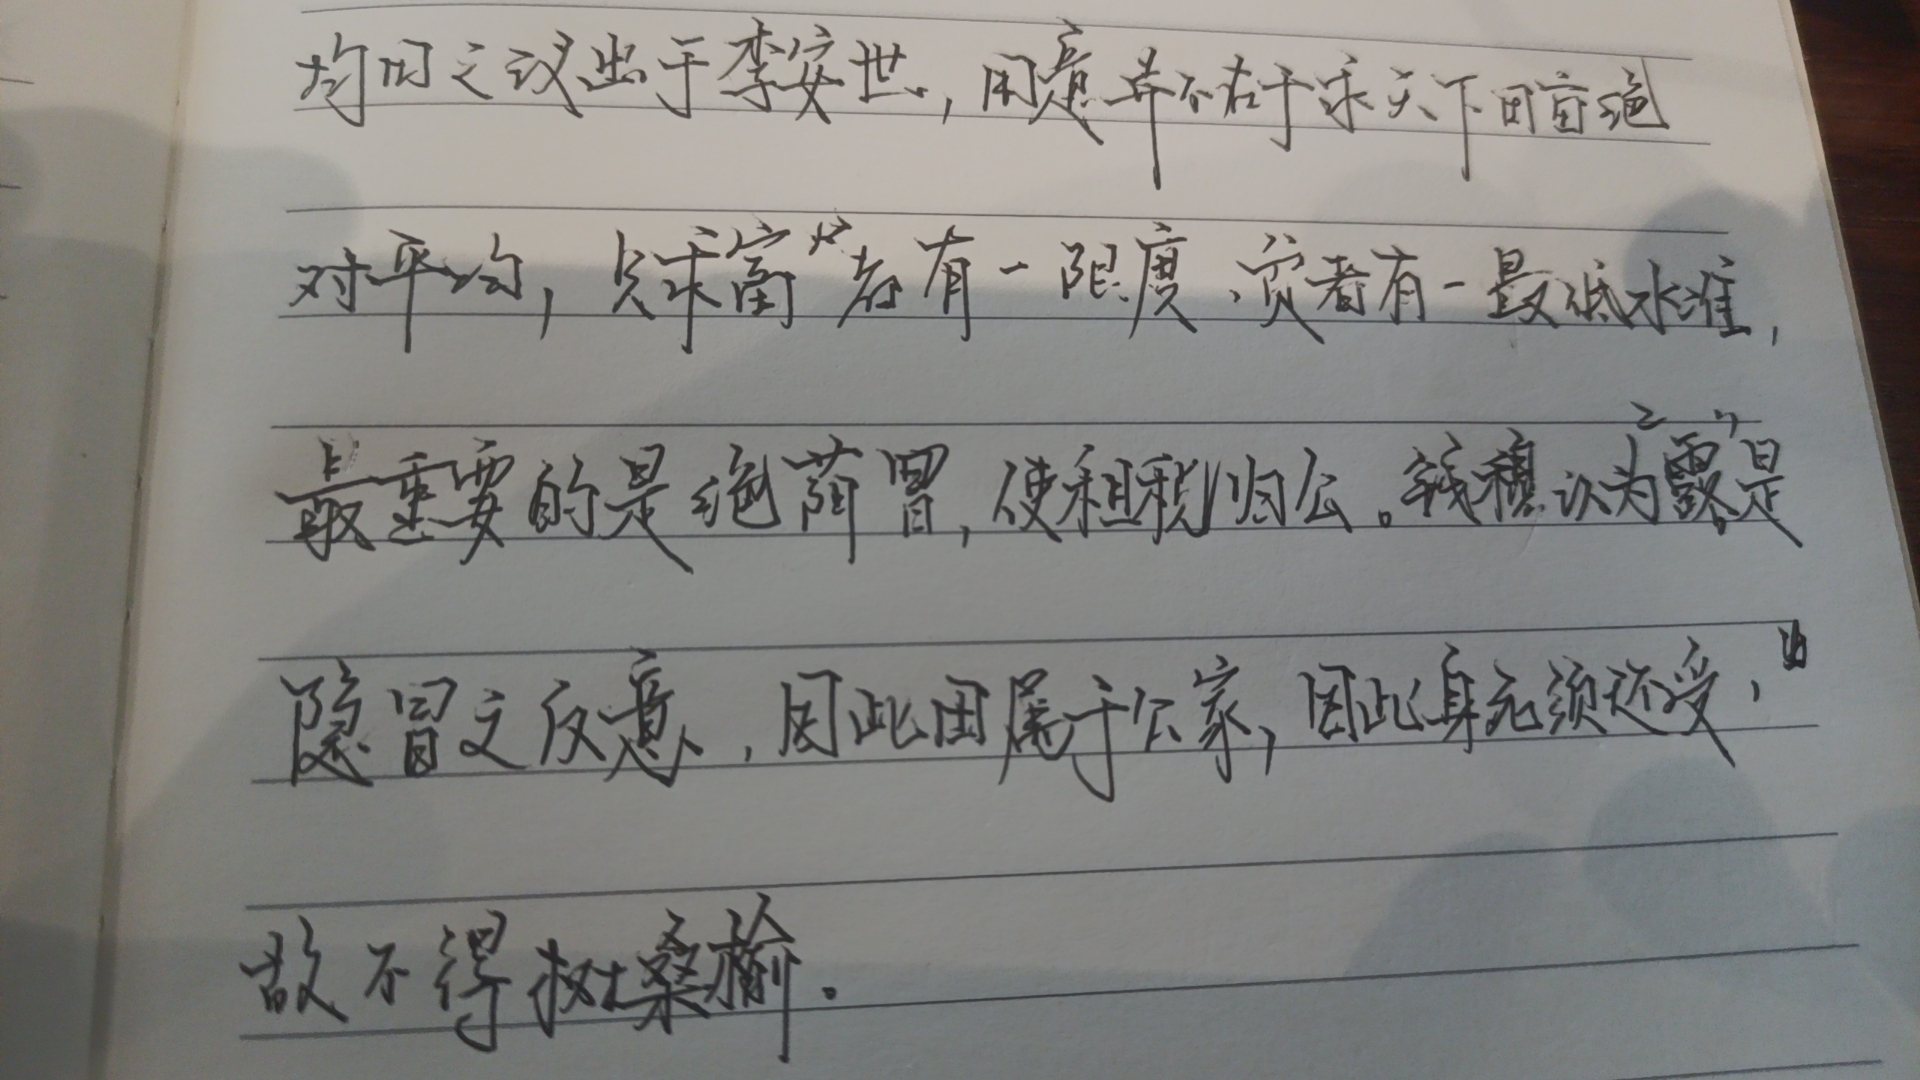 均田之议出于李安世，用意并不在于求天下田亩绝
对平均，只求富者有一限度、贫者有一最低水准，
最重要的是绝荫冒，使租税归公。钱穆认为露是
隐冒之反意，因此田属于公家，因此身死须还受，
故不得树桑榆。